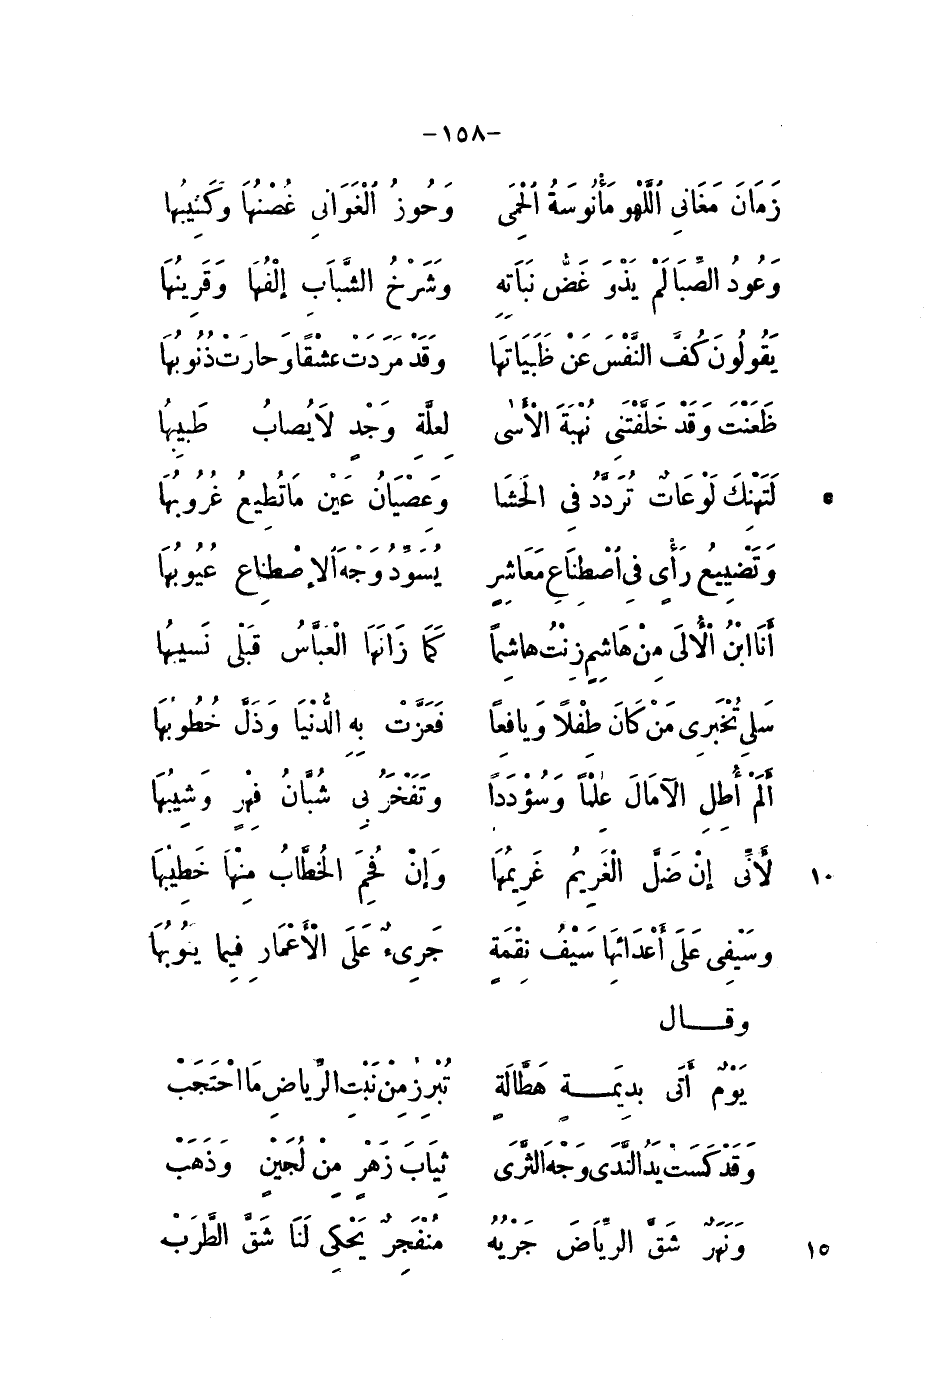 -١٥٨-
زَمَانَ مَغَانِى ٱللَّهْوِ مَأْنُوسَةُ ٱلْحِمَى وَحُوزُ ٱلْغَوَانِى غُصْنُهَا وَكَثِيبُها
وَعُودُ الصِّبَا لَمْ يَذْوَ غَضُّ نَبَاتِهِ وَشَرْخُ الشَّبَابِ إِلْفُهَا وَقَرِينُهَا
يَقُولُونَ كُفَّ النَّفْسَ عَنْ ظَبَيَاتِهَا وَقَدْ مَرَدَتْ عِشْقًا وَحارَتْ ذُنُوبُها
ظَعَنْتَ وَقَدْ خَلَّفْتَنِى نُهْبَةَ الْأَسٰى لِعِلَّةِ وَجْدٍ لَايُصابُ طَبِيبُها
لَتَهْنِكَ لَوْعَاتٌ تُرَدَّدُ فِى الحَشَا وَعِصْيَانُ عَيْنٍ مَاتُطِيعُ غُرُوبُهَا
٥
وَتَضْيِيعُ رَأْىٍ فِى ٱصْطِنَاعِ مَعَاشِرٍ يُسَوِّدُ وَجْهَ ٱلاِصْطِناعِ عُيُوبُهَا
أَنَا ابْنُ الْأُلَى مِنْ هَاشِمٍ زِنْتُ هاشِماً كَمَا زَانَهَا الْعَبَّاسُ قَبْلِى نَسيبُها
سَلِى تُخْبَرِى مَنْ كَانَ طِفْلًا وَيافِعًا فَعَزَّتْ بِهِ الدُّنْيَا وَذَلَّ خُطُوبُهَا
أَلَمْ أُطِلِ الآمَالَ عِلْمًا وَسُؤْدَدًا وَتَفْخَرُ بِى شُبَّانُ فِهْرٍ وَشِيبُهَا
لِأَنِّى إِنْ ضَلَّ الْغَرِيمُ غَرِيمُهَا وَإِنْ فُحِمَ الخُطَّابُ مِنْهَا خَطِيبُهَا
١٠
وَسَيْفِى عَلَى أَعْدَائِهَا سَيْفُ نِقْمَةٍ جَرِىءٌ عَلَى الْأَعْمَارِ فِيما يَنُوبُهَا
وقـــال
يَوْمٌ أَتَى بِدِيَمـــةٍ هَطَّالَةٍ تُبْرِزُ مِنْ نَبْتِ الرِّياضِ مَا احْتَجَبْ
وَقَدْ كَسَتْ يَدُ النَّدَى وَجْهَ الثَّرَى ثِيَابَ زَهْرٍ مِنْ لُجَيْنٍ وَذَهَبْ
وَنَهَرٌ شَقَّ الرِّيَاضَ جَرْيُهُ مُنْفَجِرٌ يَحْكِى لَنَا شَقَّ الطَّرَبْ
١٥